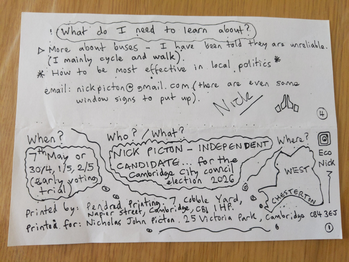 What do I need to learn about?
▷ More about buses - I have been told they are unreliable.
(I mainly cycle and walk).
* How to be most effective in local politics *
email: nickpicton@gmail.com (there are even some
window signs to put up).
Nick
4
When?
7th May or
30/4, 1/5, 2/5
(early voting
trial)
Who? / What?
NICK PICTON - INDEPENDENT
CANDIDATE... for the
Cambridge City council
election 2026
Where?
WEST
CHESTERTON
Eco
Nick
Printed by: Pendred Printing, 7 Cobble Yard,
Napier Street, Cambridge, CB1 1HP.
Printed for: Nicholas John Picton. 25 Victoria Park, Cambridge CB4 3EJ
1